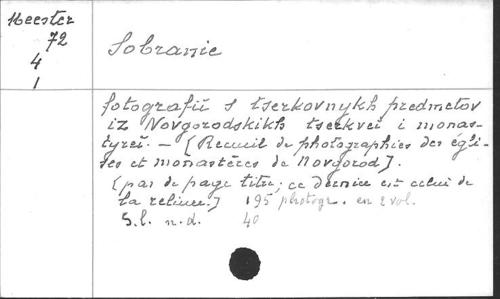 Meester
72
4
1
Sobranie
fotografiĭ s tserkovnykh predmetov
iz Novgorodskikh tserkveĭ i monas-
tyreĭ. — [Recueil de photographies des égli-
ses et monastères de Novgorod].
[pas de page titre; ce dernier est celui de
la reliure.] 195 photogr. en 2 vol.
S.l. n.d. 4o